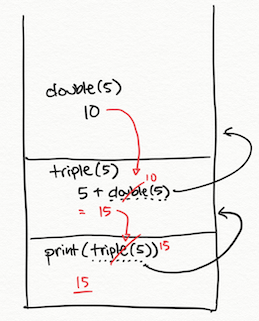 double(5)
10
triple(5)
10
5 + double(5)
= 15
print(triple(5)) 15
15